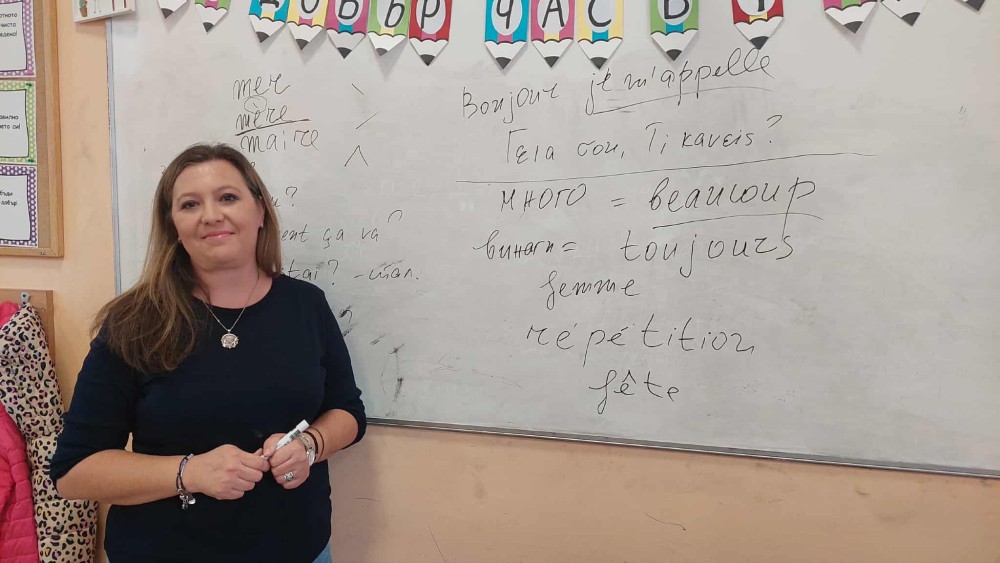 ДОБЪР ЧАС В 1
mer
mère
maire
ent ça va
tai? - итал.
Bonjour je m'appelle
Γεια σου, Τι κανεις?
много = beaucoup
винаги = toujours
femme
répétition
fête